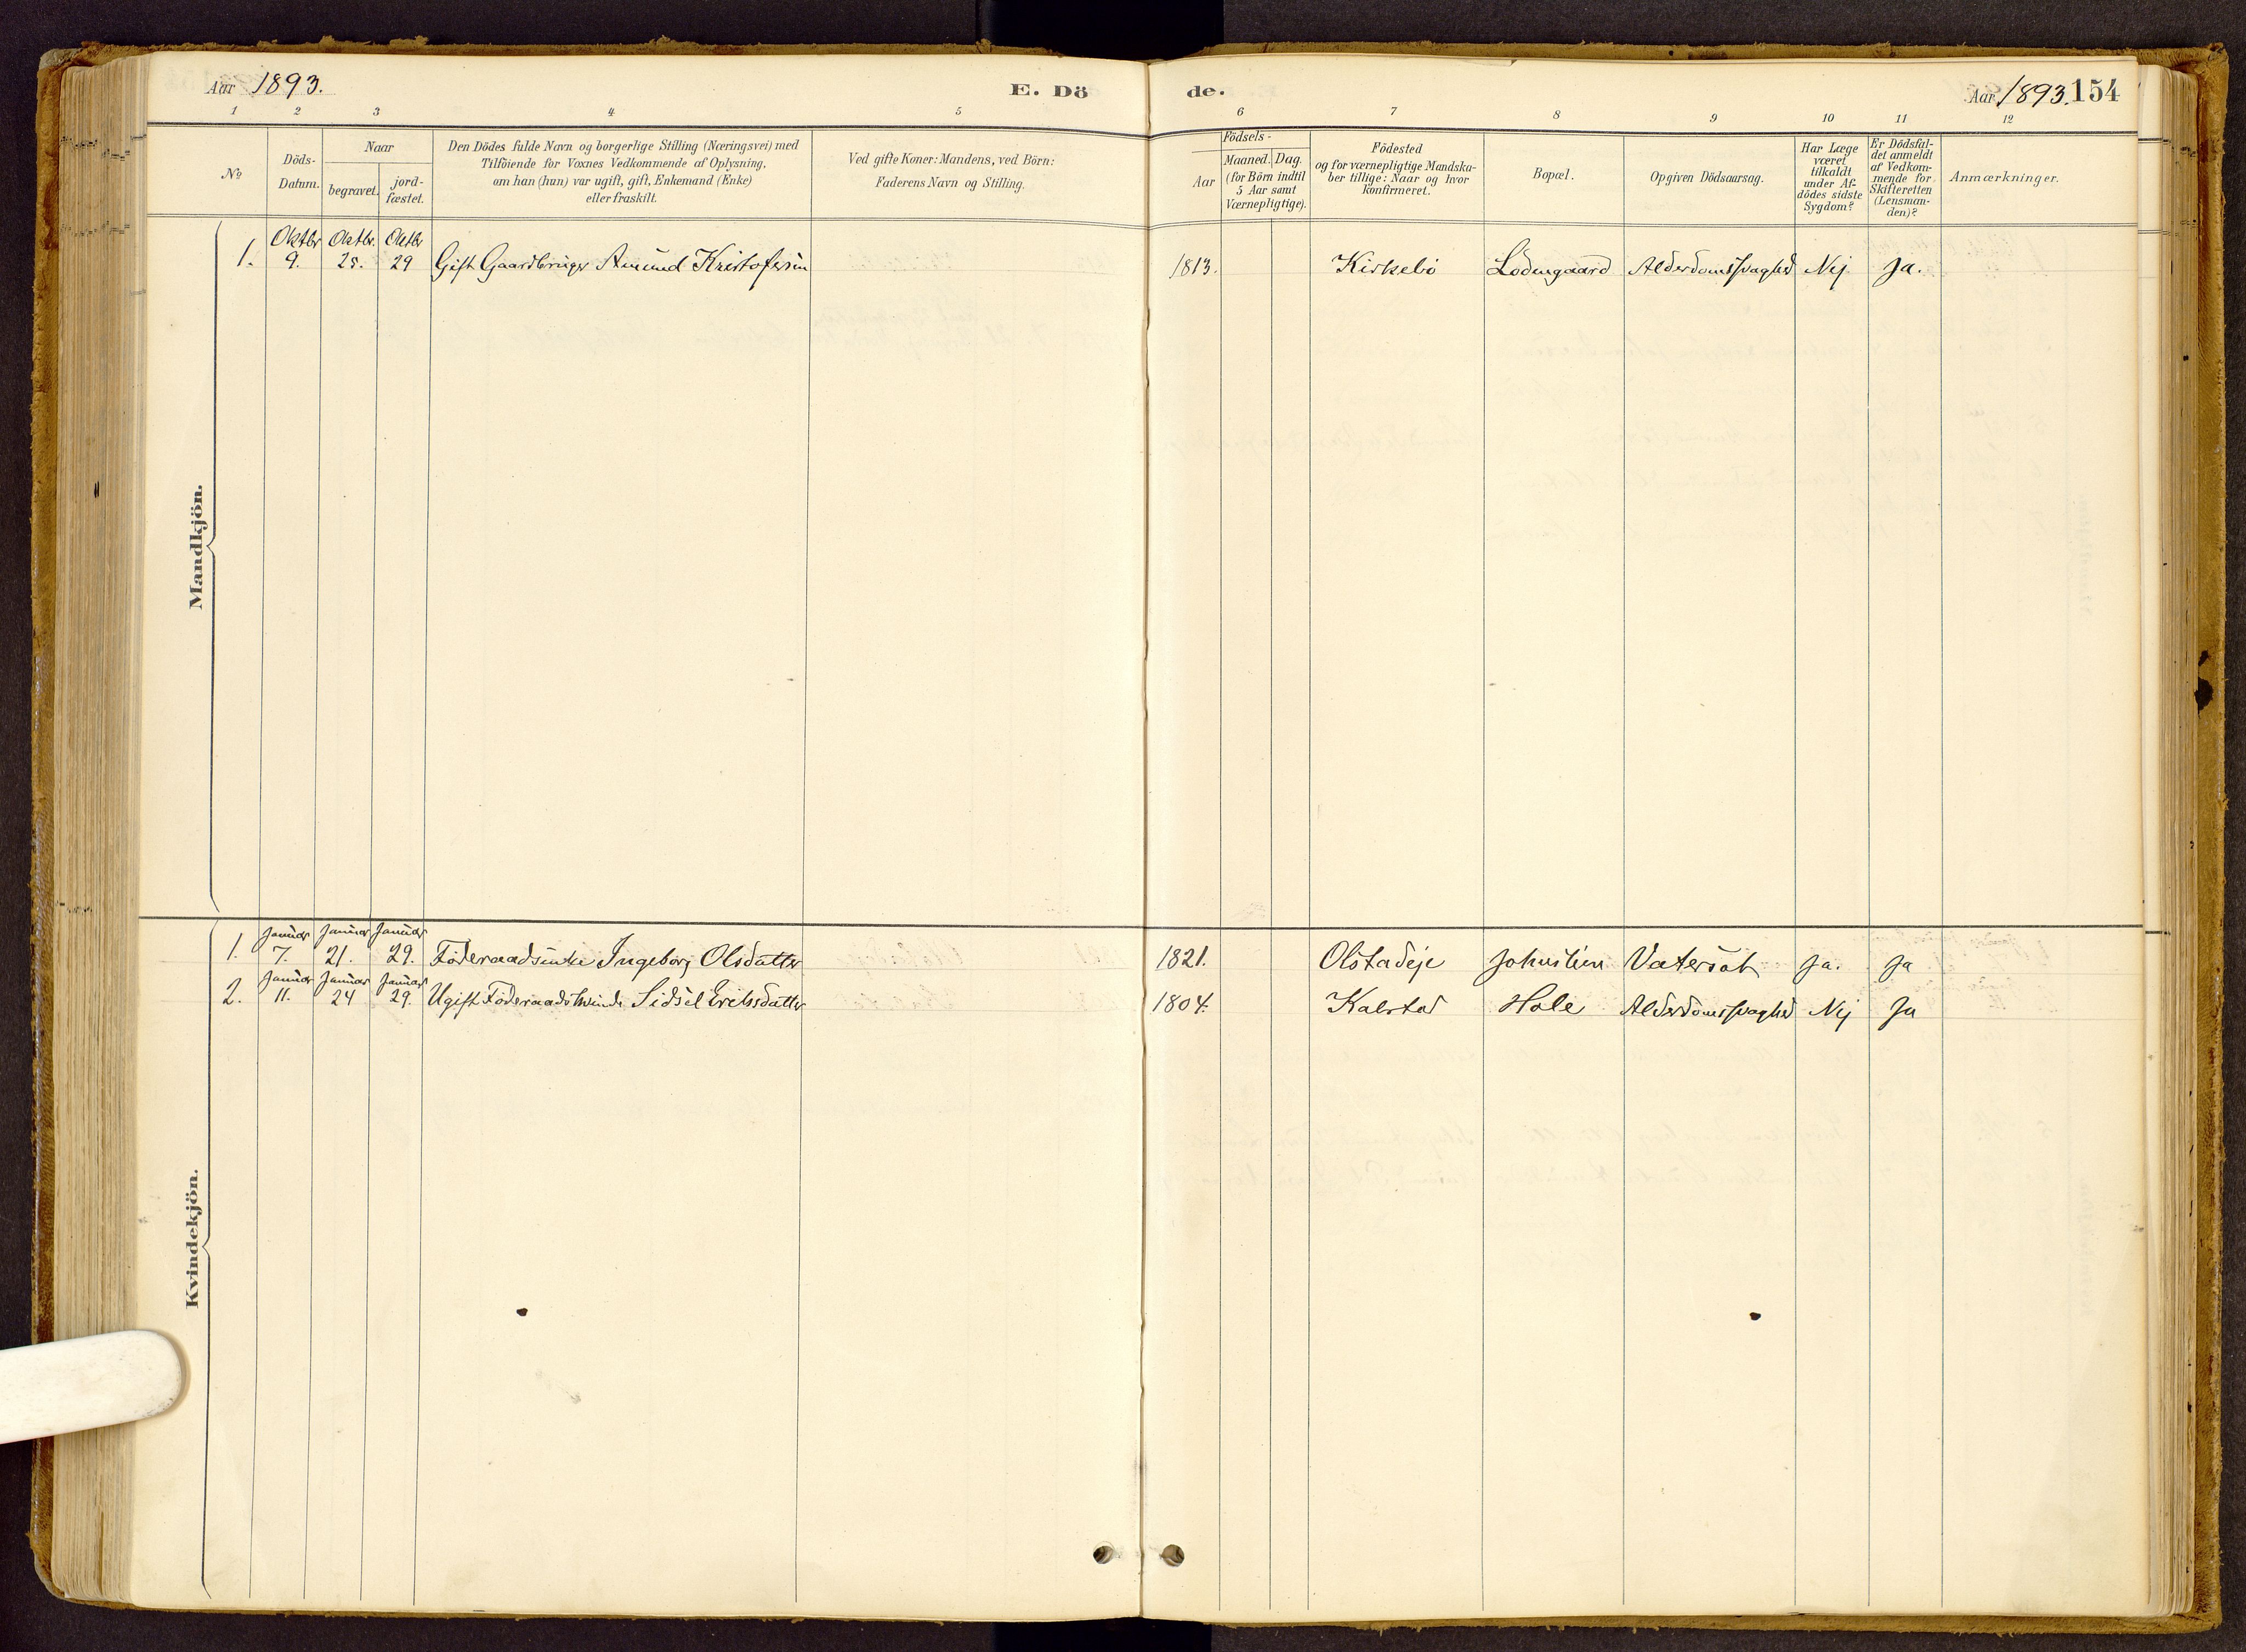 Aar 1893. E. Dö de. Aar 1893. 154
1 2 3 4 5 6 7 8 9 10 11 12
No
Döds-
Datum.
Naar
begravet.
jord-
fæstet.
Den Dödes fulde Navn og borgerlige Stilling (Næringsvei) med
Tilföiende for Voxnes Vedkommende af Oplysning,
om han (hun) var ugift, gift, Enkemand (Enke)
eller fraskilt.
Ved gifte Koner: Mandens, ved Börn:
Faderens Navn og Stilling.
Födsels-
Aar
Maaned. Dag.
(for Börn indtil
5 Aar samt
Værnepligtige).
Födested
og for værnepligtige Mandska-
ber tillige: Naar og hvor
konfirmeret.
Bopæl.
Opgiven Dödsaarsag.
Har Læge
været
tilkaldt
under Af-
dödes sidste
Sygdom?
Er Dödsfal-
det anmeldt
af Vedkom-
mende for
Skifteretten
(Lensman-
den)?
Anmærkninger.
Mandkjön.
Oktbr Oktbr. Oktbr
1. 9. 25. 29 Gift Gaardbruger Amund Kristofersen 1813. Kirkebö Lodengaard Alderdomssvaghed Nej Ja.
Kvindekjön.
Januar Januar Januar
1. 7. 21. 29. Föderaadsenke Ingeborg Olsdatter 1821. Olstadeje Vatersot Ja. Ja
Januar Januar Januar
2. 11. 24 29. Ugift Föderaadskvinde Sidsel Eriksdatter 1804. Kalstad Hole Alderdomssvaghed Nej Ja